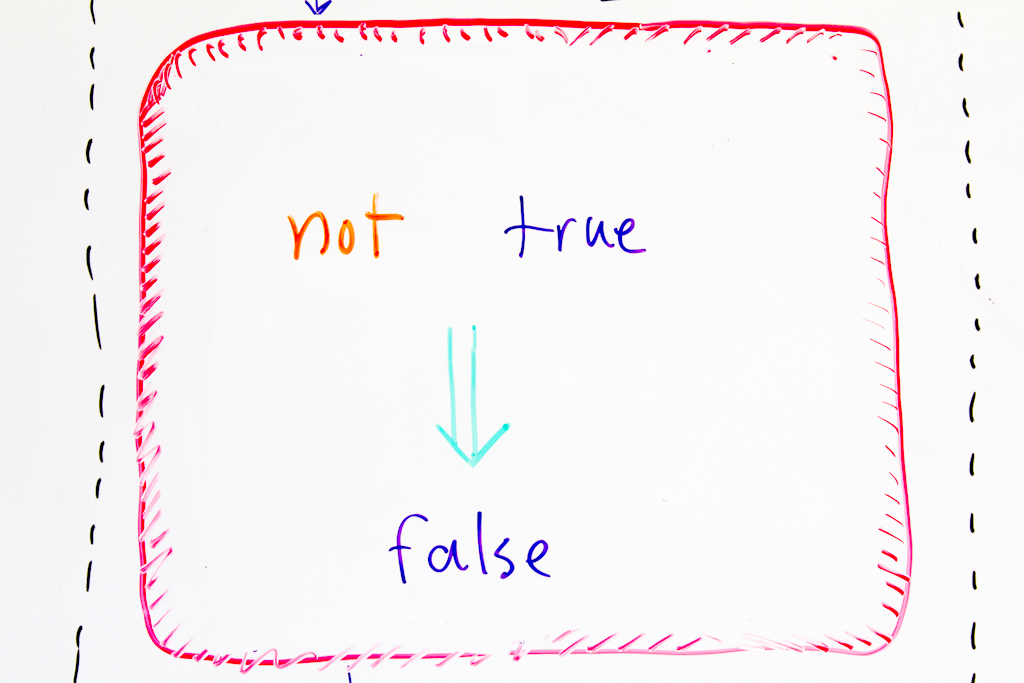 not true
false